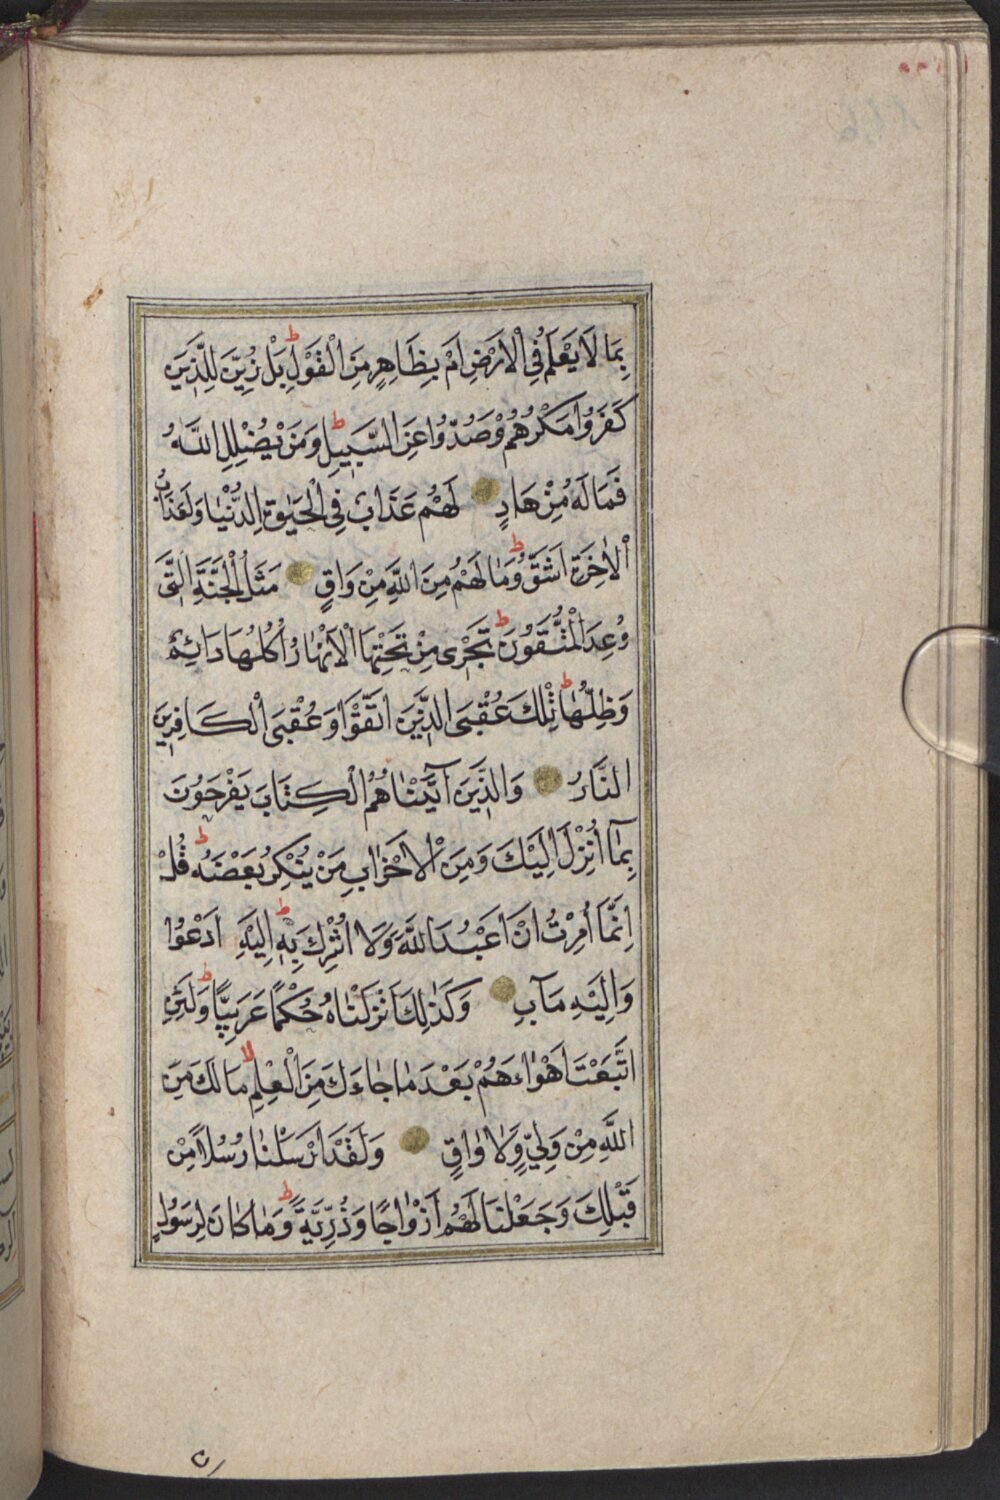 بِمَا لَا يَعْلَمُ فِي الْاَرْضِ اَمْ بِظَاهِرٍ مِنَ الْقَوْلِ ط بَلْ زُيِّنَ لِلَّذِينَ
كَفَرُوا مَكْرُهُمْ وَصُدُّوا عَنِ السَّبِيلِ ط وَمَنْ يُضْلِلِ اللَّهُ
فَمَا لَهُ مِنْ هَادٍ لَهُمْ عَذَابٌ فِي الْحَيٰوةِ الدُّنْيَا وَلَعَذَابُ
الْاٰخِرَةِ اَشَقُّ ط وَمَا لَهُمْ مِنَ اللَّهِ مِنْ وَاقٍ مَثَلُ الْجَنَّةِ الَّتِي
وُعِدَ الْمُتَّقُونَ ط تَجْرِي مِنْ تَحْتِهَا الْاَنْهَارُ اُكُلُهَا دَائِمٌ
وَظِلُّهَا ط تِلْكَ عُقْبَى الَّذِينَ اتَّقَوْا وَعُقْبَى الْكَافِرِينَ
النَّارُ وَالَّذِينَ آتَيْنَاهُمُ الْكِتَابَ يَفْرَحُونَ
بِمَا اُنْزِلَ اِلَيْكَ وَمِنَ الْاَحْزَابِ مَنْ يُنْكِرُ بَعْضَهُ ط قُلْ
اِنَّمَا اُمِرْتُ اَنْ اَعْبُدَ اللَّهَ وَلَا اُشْرِكَ بِهِ ط اِلَيْهِ اَدْعُوا
وَاِلَيْهِ مَآبِ وَكَذٰلِكَ اَنْزَلْنَاهُ حُكْمًا عَرَبِيًّا ط وَلَئِنِ
اتَّبَعْتَ اَهْوَاءَهُمْ بَعْدَمَا جَاءَكَ مِنَ الْعِلْمِ لا مَا لَكَ مِنَ
اللَّهِ مِنْ وَلِيٍّ وَلَا وَاقٍ وَلَقَدْ اَرْسَلْنَا رُسُلًا مِنْ
قَبْلِكَ وَجَعَلْنَا لَهُمْ اَزْوَاجًا وَذُرِّيَّةً ط وَمَا كَانَ لِرَسُولٍ